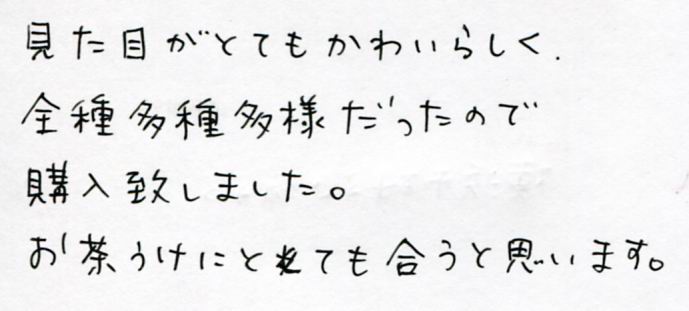 見た目がとてもかわいらしく、
全種多種多様だったので
購入致しました。
お茶うけにとても合うと思います。